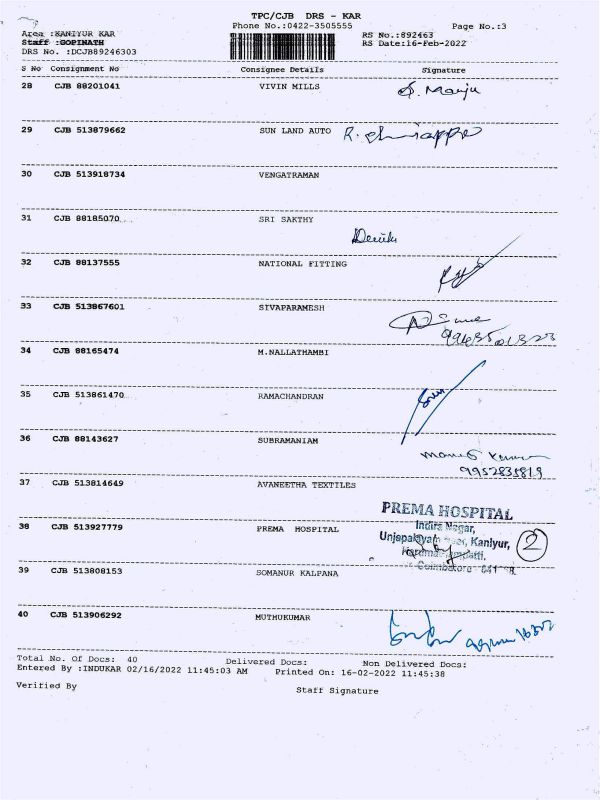 TPC/CJB DRS - KAR
Phone No.:0422-3505555 Page No.:3
Area :KANIYUR KAR RS No.:892463
Staff :GOPINATH RS Date:16-Feb-2022
DRS No. :DCJB89246303
S No Consignment No Consignee Details Signature
28 CJB 88201041 VIVIN MILLS
29 CJB 513879662 SUN LAND AUTO
30 CJB 513918734 VENGATRAMAN
31 CJB 88185070 SRI SAKTHY
32 CJB 88137555 NATIONAL FITTING
33 CJB 513867601 SIVAPARAMESH
34 CJB 88165474 M.NALLATHAMBI
35 CJB 513861470 RAMACHANDRAN
36 CJB 88143627 SUBRAMANIAM
9952835819
37 CJB 513814649 AVANEETHA TEXTILES
PREMA HOSPITAL
Indira Nagar,
38 CJB 513927779 PREMA HOSPITAL
Kaniyur, 2
Coimbatore
39 CJB 513808153 SOMANUR KALPANA
40 CJB 513906292 MUTHUKUMAR
Total No. Of Docs: 40 Delivered Docs: Non Delivered Docs:
Entered By :INDUKAR 02/16/2022 11:45:03 AM Printed On: 16-02-2022 11:45:38
Verified By Staff Signature